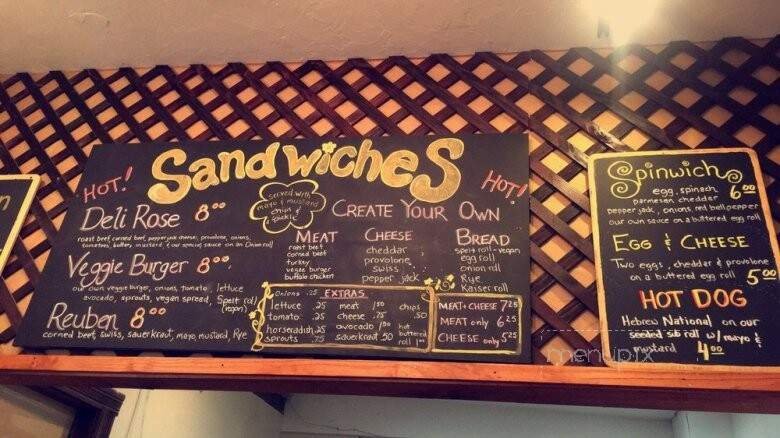 Sandwiches
HOT!
HOT!
Deli Rose 8⁰⁰
roast beef, corned beef, pepper jack cheese, provolone, onions,
tomatoes, lettuce, mustard, & our special sauce on an Onion roll
Veggie Burger 8⁰⁰
our own veggie burger, onions, tomato, lettuce
avocado, sprouts, vegan spread, Spelt roll
(vegan)
Reuben 8⁰⁰
corned beef, swiss, sauerkraut, mayo, mustard, Rye
served with
mayo & mustard
chips &
pickle
CREATE YOUR OWN
MEAT
roast beef
corned beef
turkey
veggie burger
buffalo chicken
CHEESE
cheddar
provolone
swiss
pepper jack
BREAD
spelt roll-vegan
egg roll
onion roll
Rye
Kaiser roll
EXTRAS
Onions .25
lettuce .25
tomato .25
horseradish .25
sprouts .75
meat 1.50
cheese .75
avocado 1.00
sauerkraut .50
chips .50
hot
buttered
roll 1.00
MEAT + CHEESE 7.25
MEAT only 6.25
CHEESE only 5.25
Spinwich 6⁰⁰
egg, spinach
parmesan cheddar
pepper jack, onions, red bell pepper
our own sauce on a buttered egg roll
EGG & CHEESE
Two eggs, cheddar & provolone
on a buttered egg roll 5⁰⁰
HOT DOG
Hebrew National on our
seeded sub roll w/ mayo &
mustard 4⁰⁰
menupix